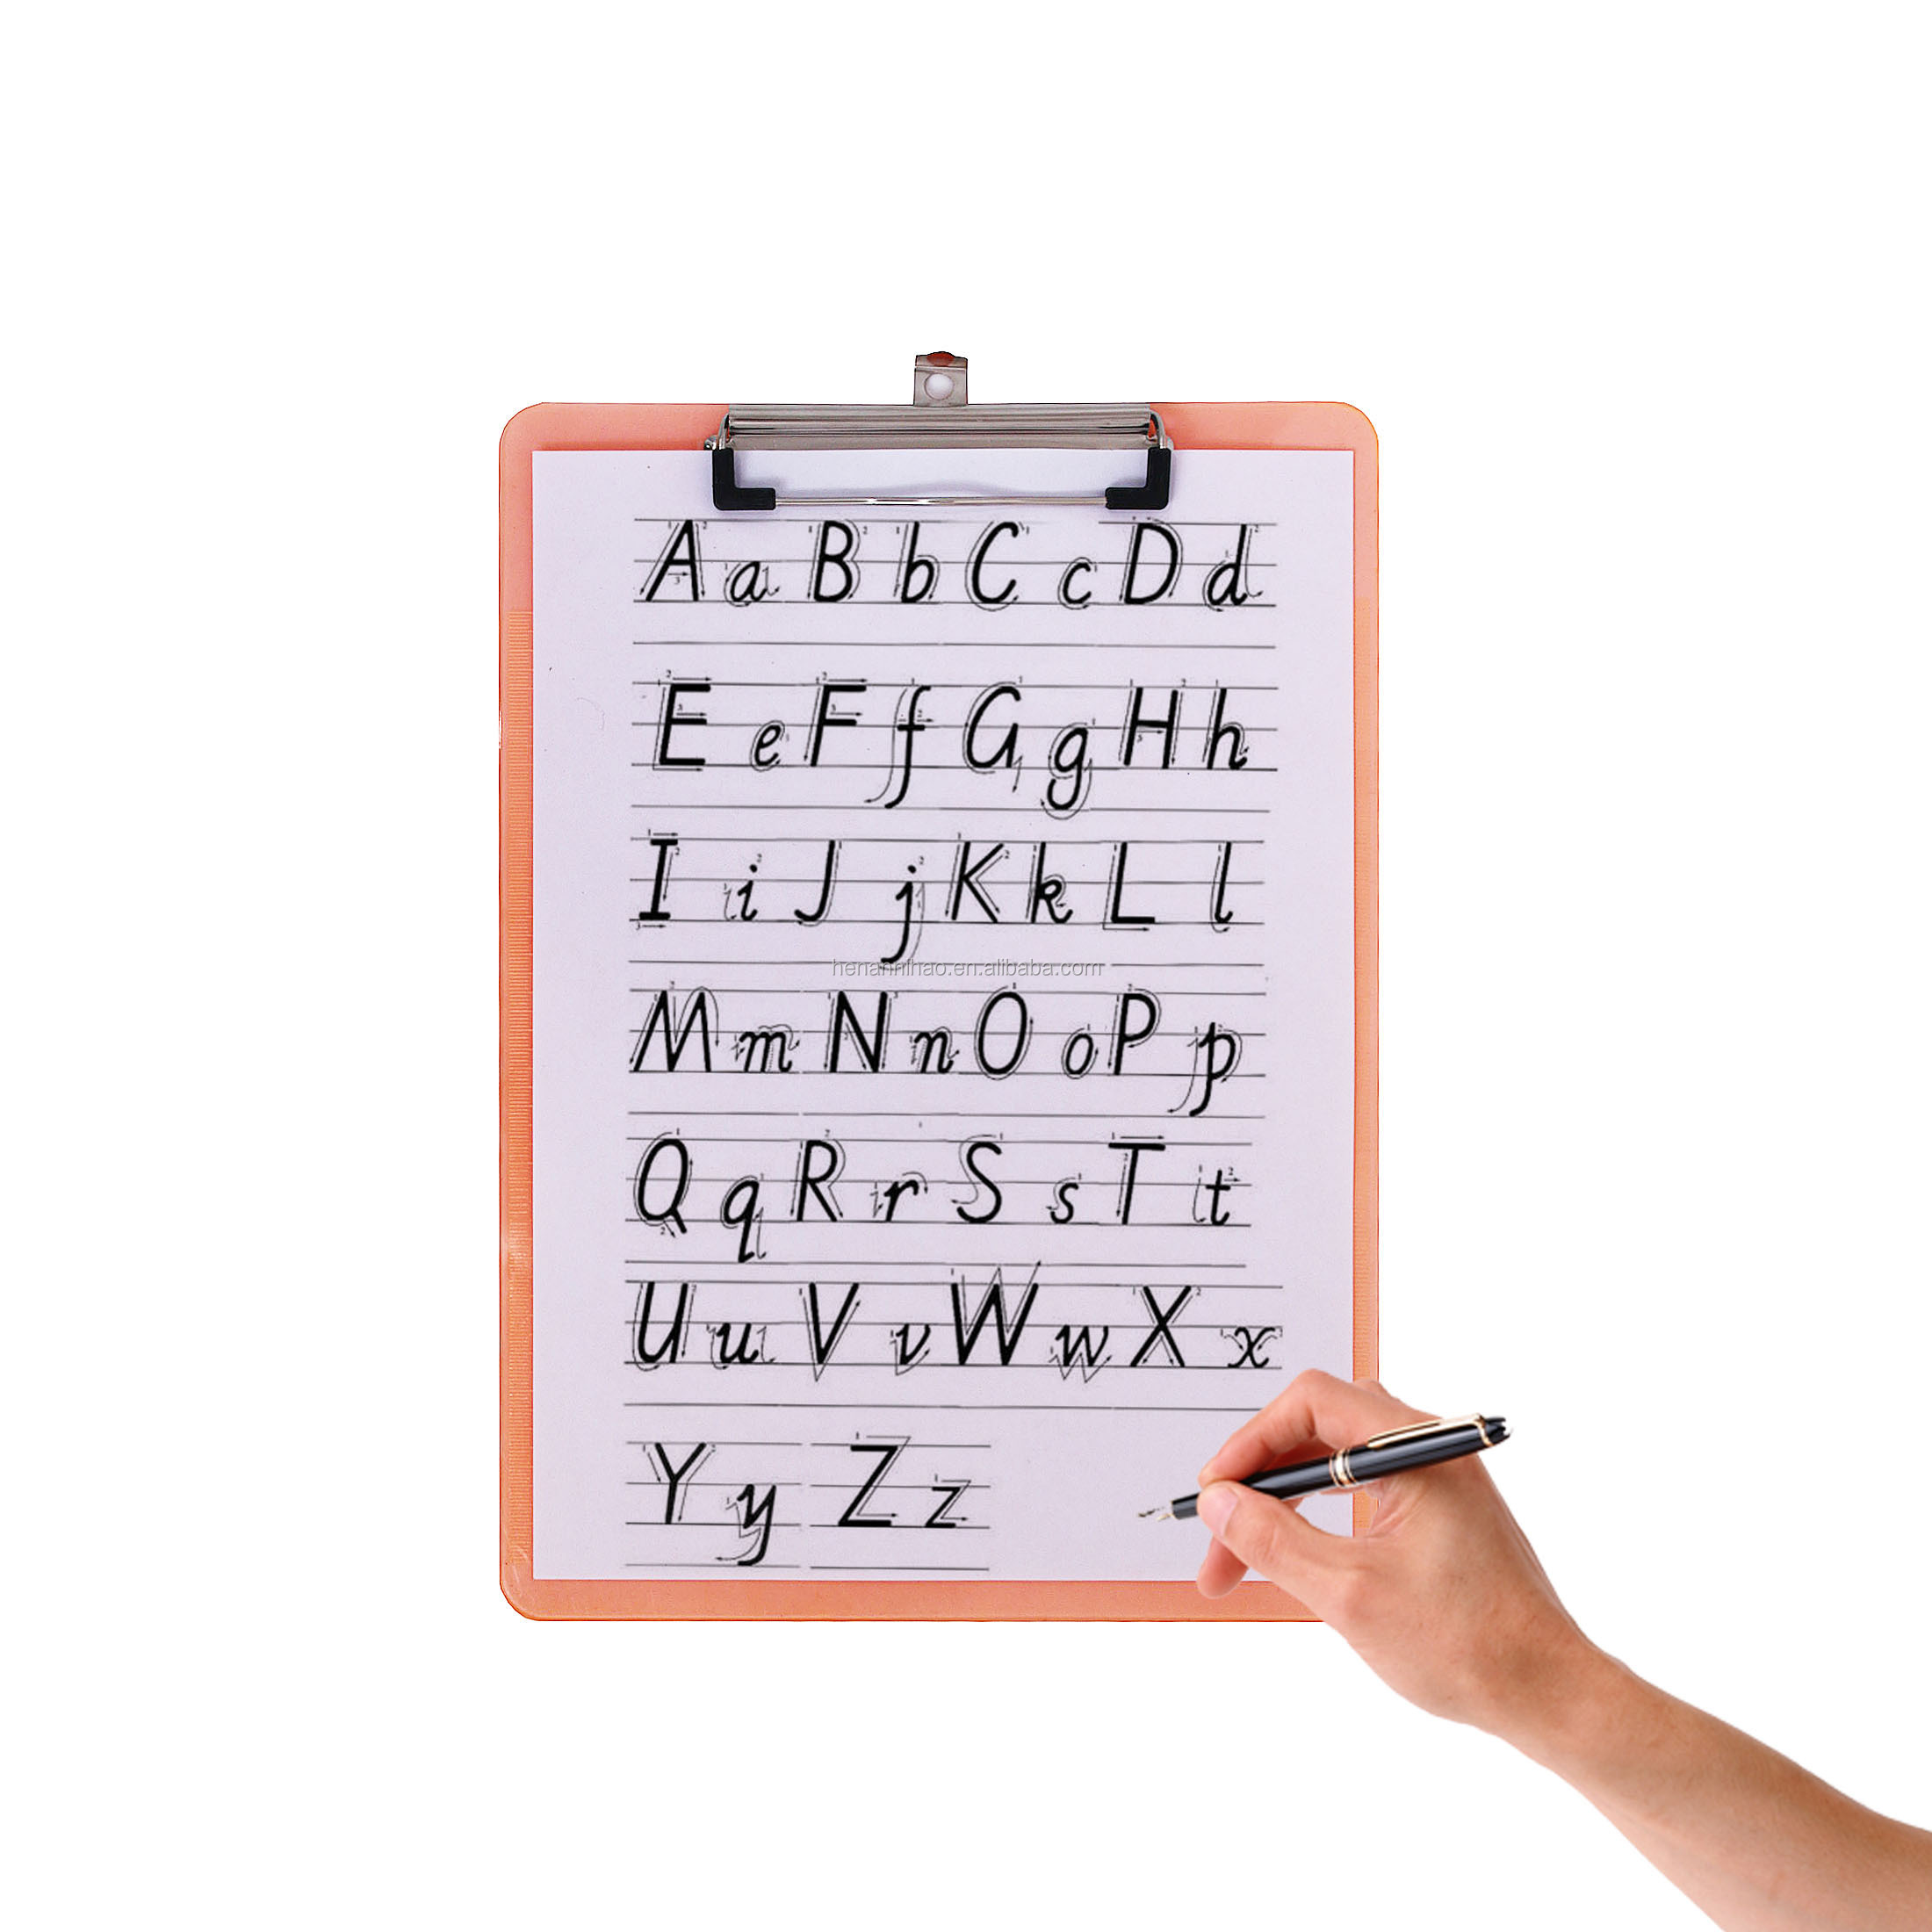 A a B b C c D d
E e F f G g H h
I i J j K k L l
henannihao.en.alibaba.com
M m N n O o P p
Q q R r S s T t
U u V v W w X x
Y y Z z